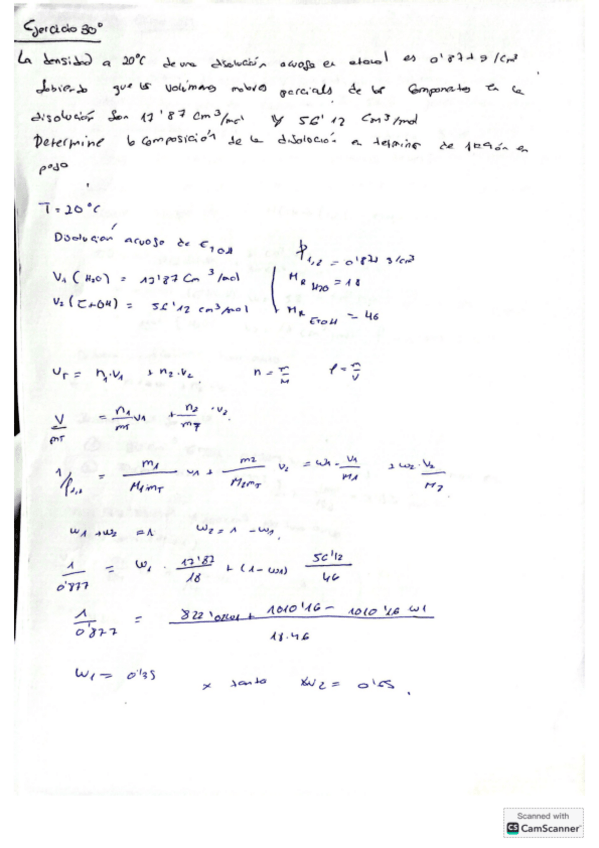 Ejercicio 30°
La densidad a 20°C de una disolución acuosa en etanol es 0'877 g/cm³
Sabiendo que los volúmenes molares parciales de los componentes en la
disolución son 17'87 cm³/mol y 56'12 cm³/mol
Determine la composición de la disolución en termino de fracción en
peso
T = 20°C
Disolución acuosa de EtOH
ρ1,2 = 0'877 g/cm³
V1 (H2O) = 17'87 cm³/mol
MR H2O = 18
V2 (EtOH) = 56'12 cm³/mol
MR EtOH = 46
VT = n1·V1 + n2·V2 n = m/M ρ = m/V
V/mT = n1/mT V1 + n2/mT · V2
1/ρ1,2 = m1/M1mT V1 + m2/M2mT V2 = w1 · V1/M1 + w2 · V2/M2
w1 + w2 = 1 w2 = 1 - w1
1/0'877 = w1 · 17'87/18 + (1-w1) 56'12/46
1/0'877 = 822'02w1 + 1010'16 - 1010'16 w1 / 18·46
w1 = 0'35
x tanto w2 = 0'65.
Scanned with
CS CamScanner